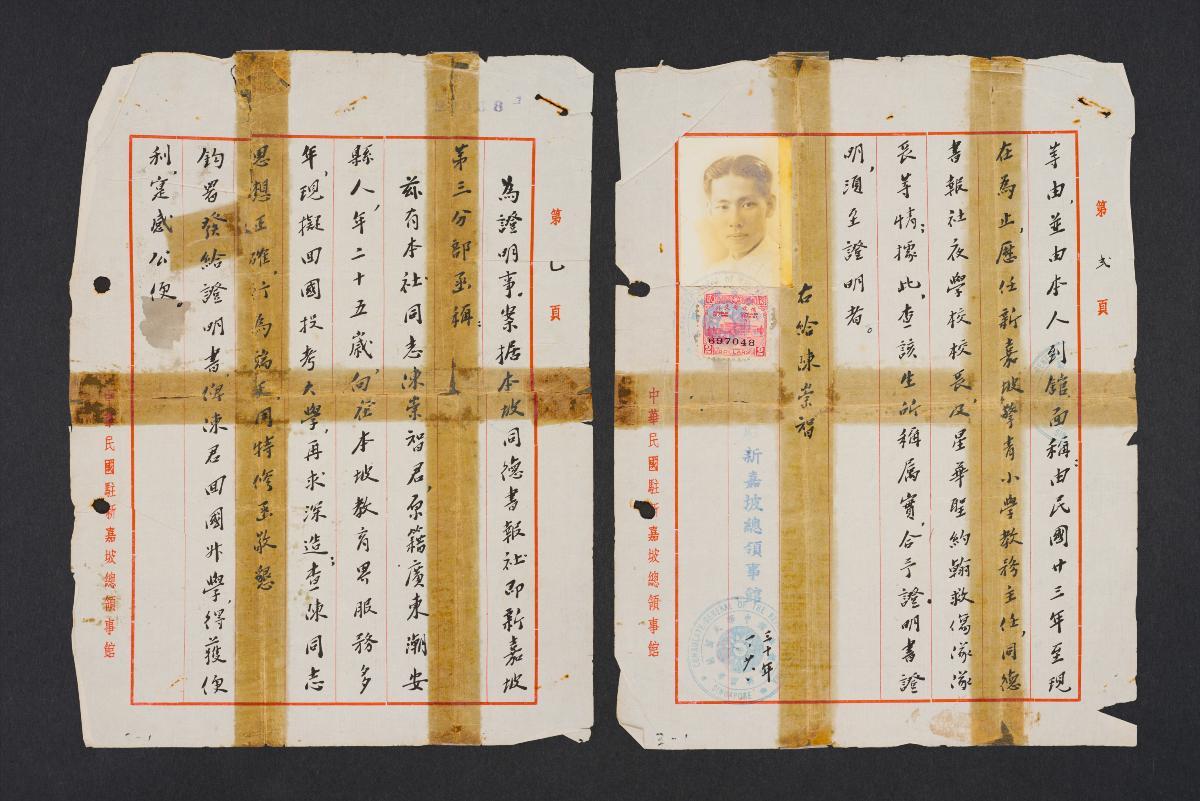 第乙頁
為證明事,案据本坡同德書報社即新嘉坡
第三分部函稱:
茲有本社同志陳崇智君,原籍廣東潮安
縣人,年二十五歲,向在本坡教育界服務多
年,現擬回國投考大學,再求深造;查陳同志
思想正確,行為端正,用特修函敬懇
鈞署發給證明書,俾陳君回國升學,得獲便
利,寔感公便。
中華民國駐新嘉坡總領事館
第弍頁
等由,並由本人到館面稱:由民國廿三年至現
在為止,歷任新嘉坡擎青小學教務主任,同德
書報社夜學校校長及星華聖約翰救傷隊隊
長等情;據此,查該生所稱屬實,合予證明書證
明,須至證明者。
右給陳崇智
新嘉坡總領事館
697048
2
2
CONSULATE GENERAL OF THE
SINGAPORE
三十年
中華民國駐新嘉坡總領事館